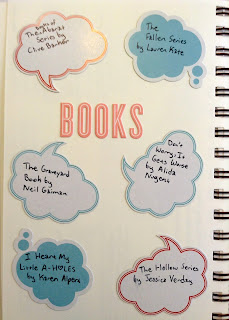 Books of
The Abarat
Series by
Clive Barker
The
Fallen Series
by Lauren Kate
BOOKS
The Graveyard
Book by
Neil Gaiman
Don't
Worry, It
Gets Worse
by Alida
Nugent
I Heart My
Little A-HOLES
by Karen Alpert
The Hollow Series
by Jessica Verday